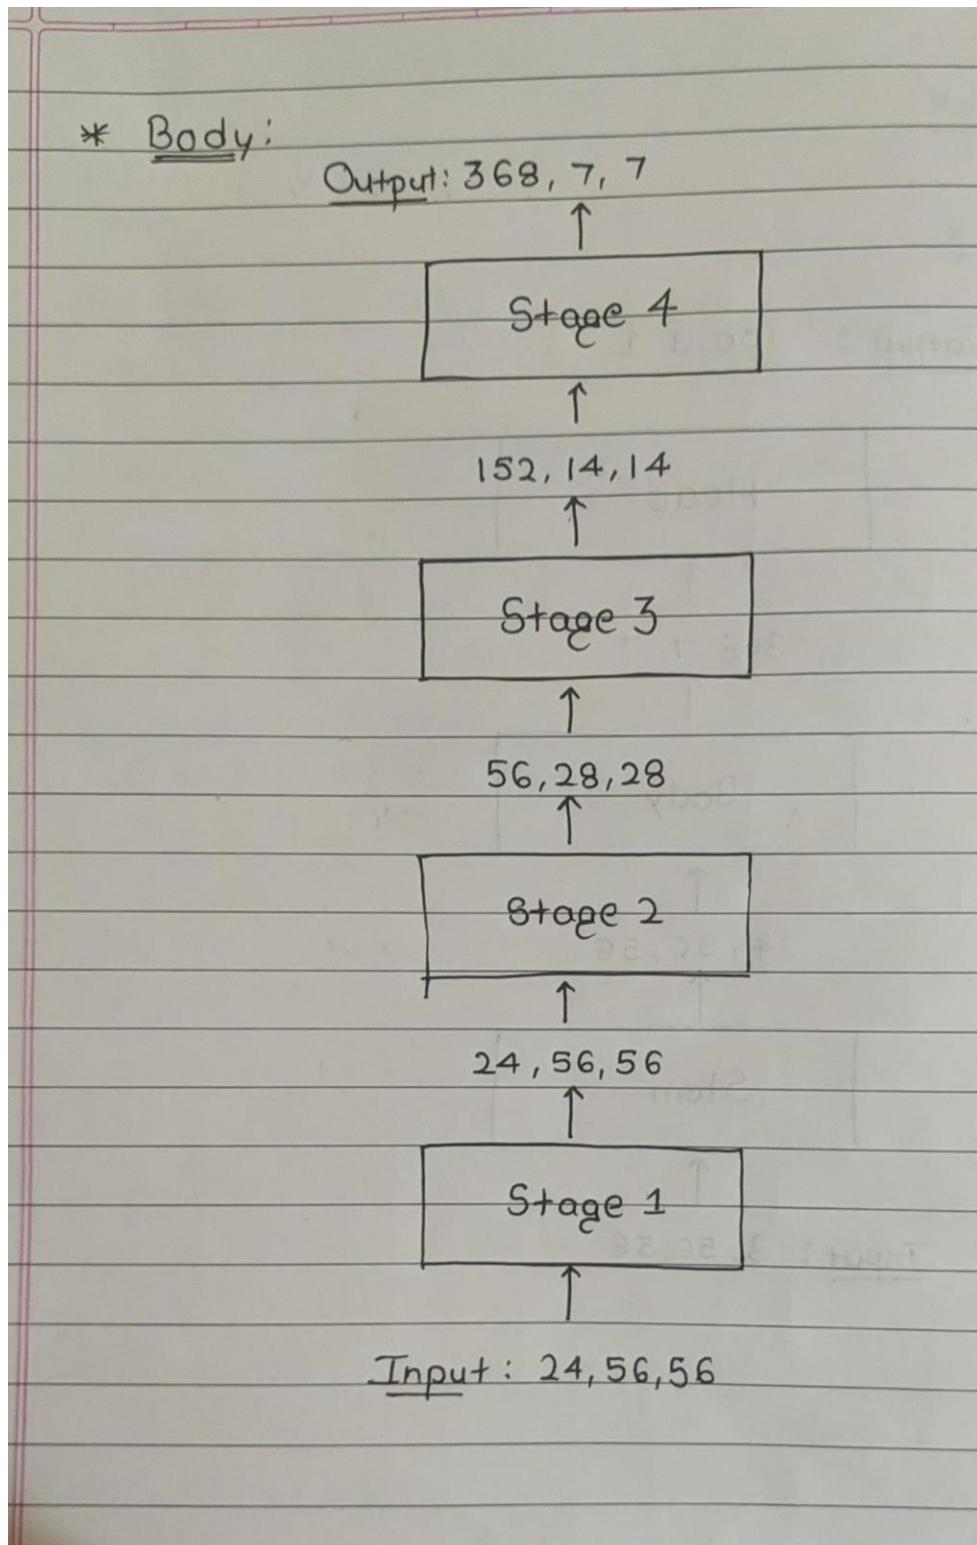 * Body:
Output: 368, 7, 7
↑
Stage 4
↑
152, 14, 14
↑
Stage 3
↑
56, 28, 28
↑
Stage 2
↑
24, 56, 56
↑
Stage 1
↑
Input: 24, 56, 56